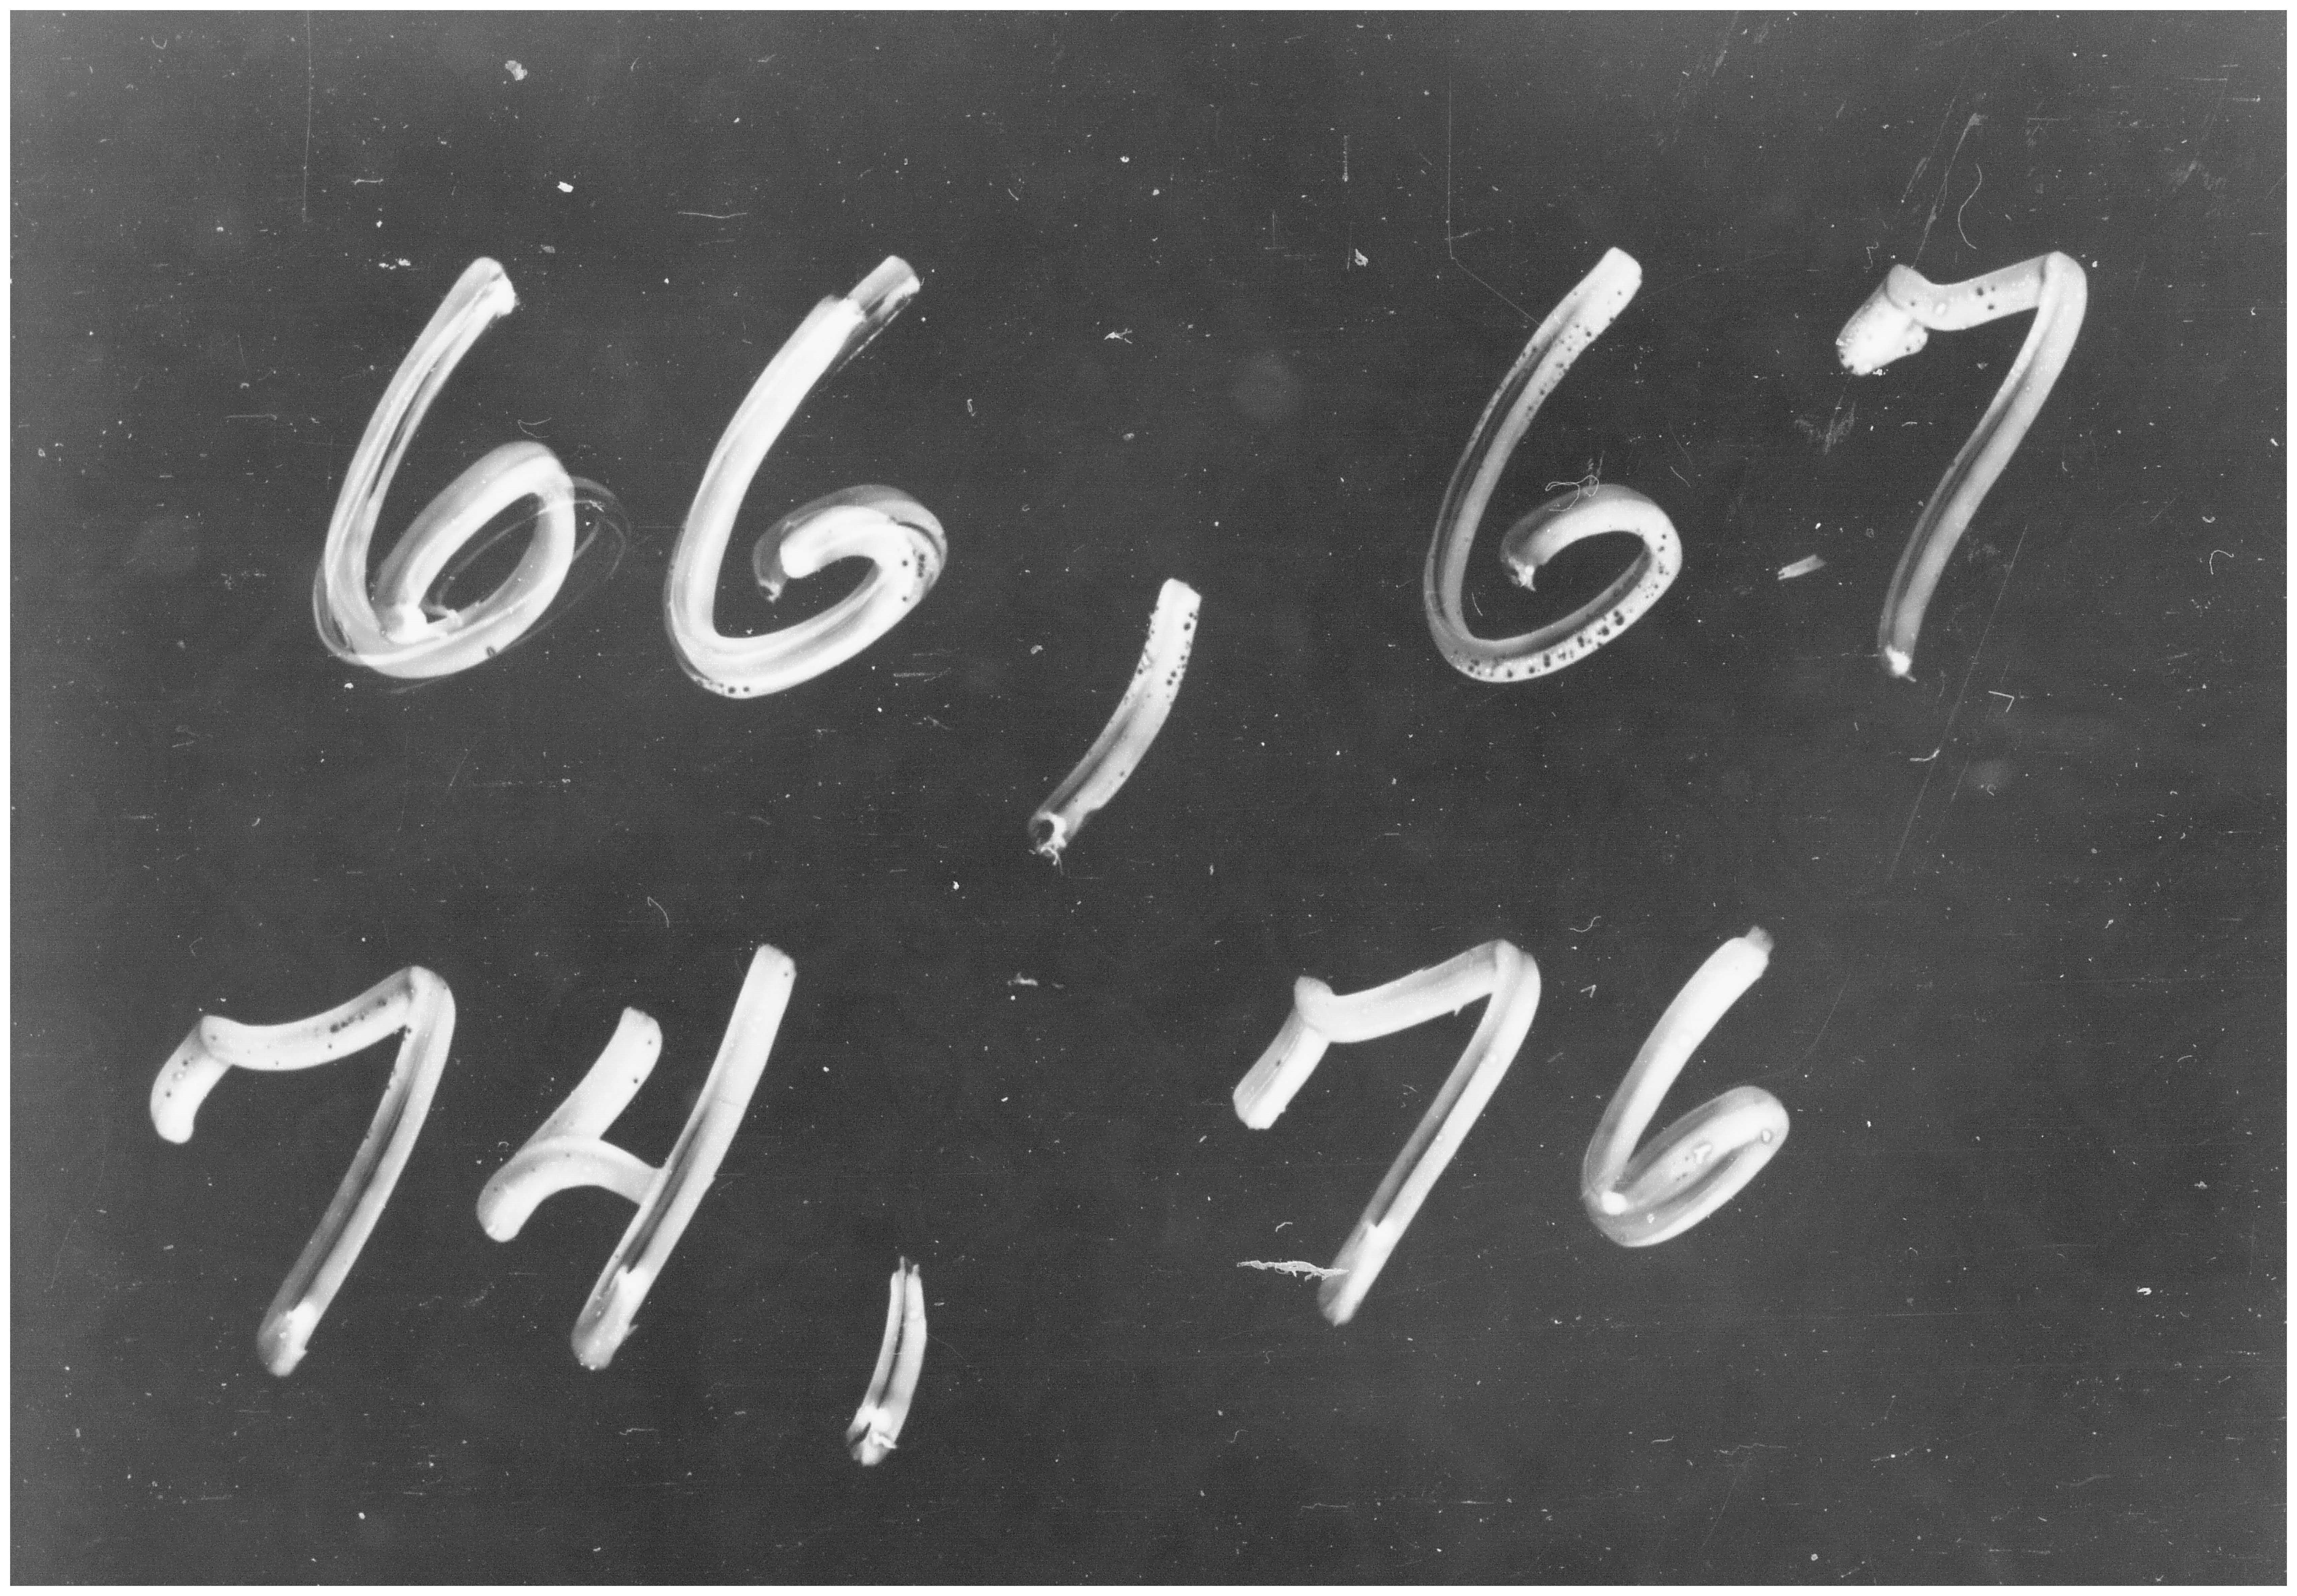 66, 67
74, 76